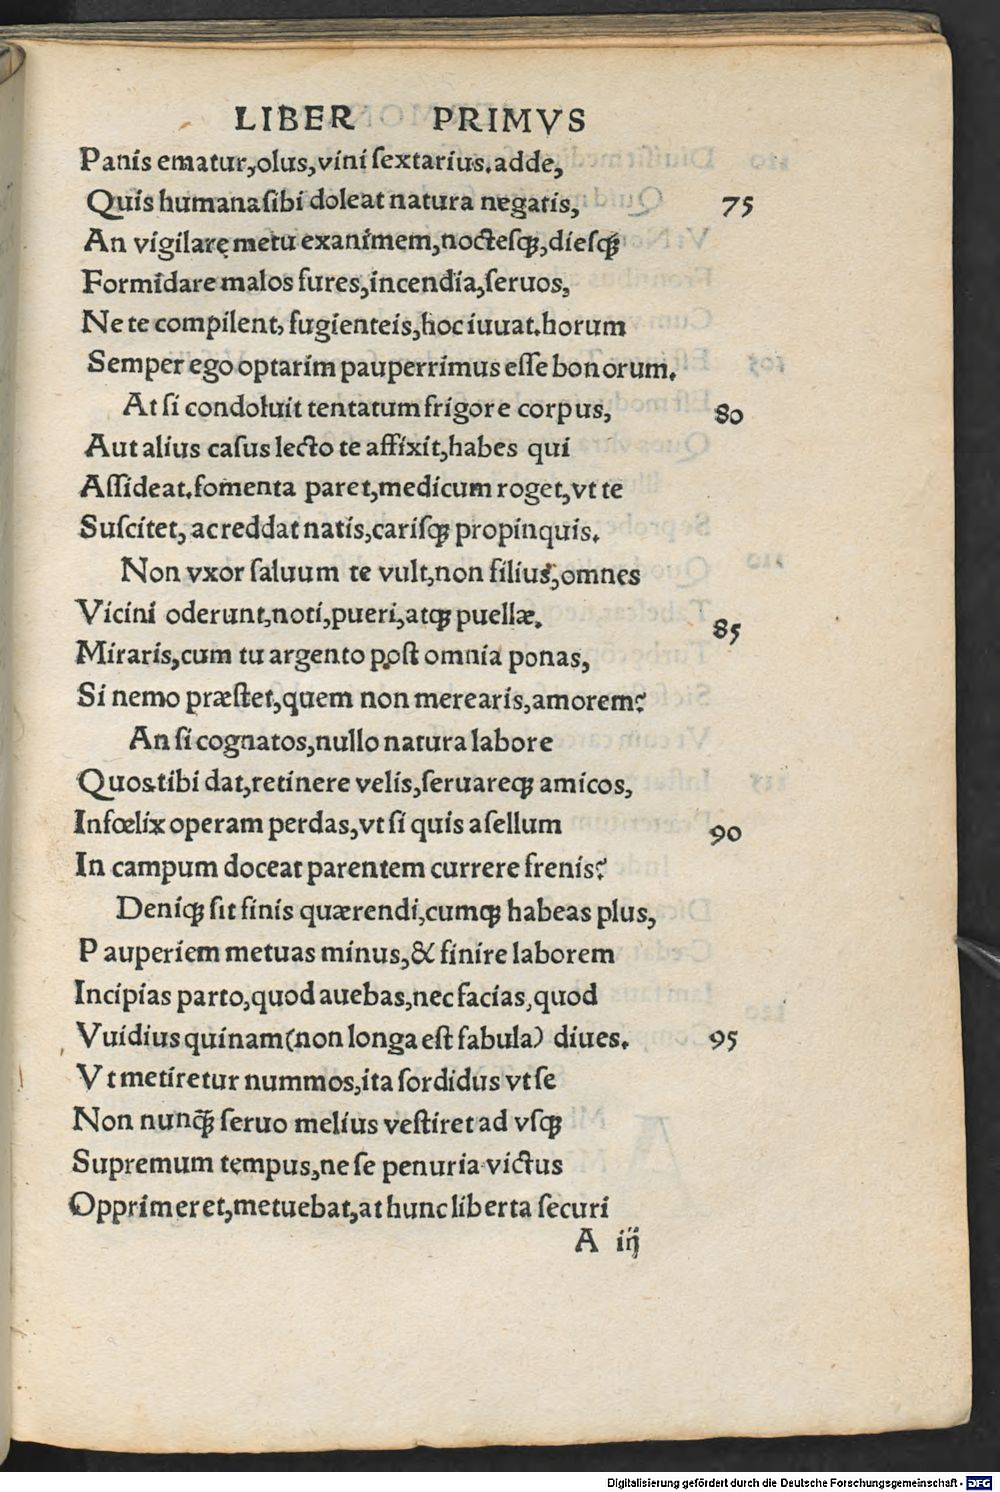 LIBER PRIMVS
Panis ematur,olus,vini ſextarius.adde,
Quis humana ſibi doleat natura negatis, 75
An vigilarę metu exanimem,noctesq́ꝫ,diesq́ꝫ
Formidare malos fures,incendia,ſeruos,
Ne te compilent, fugienteis,hoc iuuat.horum
Semper ego optarim pauperrimus eſſe bonorum.
At ſi condoluit tentatum frigore corpus, 80
Aut alius caſus lecto te affixit,habes qui
Aſſideat.fomenta paret,medicum roget,vt te
Suſcitet, ac reddat natis,cariſqꝫ propinquis.
Non vxor ſaluum te vult,non filius,omnes
Vicini oderunt,noti,pueri,atqꝫ puellæ. 85
Miraris,cum tu argento poſt omnia ponas,
Si nemo præſtet,quem non merearis,amorem?
An ſi cognatos,nullo natura labore
Quos tibi dat,retinere velis,ſeruareqꝫ amicos,
Infœlix operam perdas,vt ſi quis aſellum 90
In campum doceat parentem currere frenis?
Deniqꝫ ſit finis quærendi,cumqꝫ habeas plus,
Pauperiem metuas minus,& finire laborem
Incipias parto,quod auebas,nec facias,quod
Vuidius quinam(non longa eſt fabula) diues. 95
Vt metiretur nummos,ita ſordidus vt ſe
Non nunq̄ꝫ ſeruo melius veſtiret ad vſqꝫ
Supremum tempus,ne ſe penuria victus
Opprimeret,metuebat,at hunc liberta ſecuri
A iij
Digitalisierung gefördert durch die Deutsche Forschungsgemeinschaft - DFG